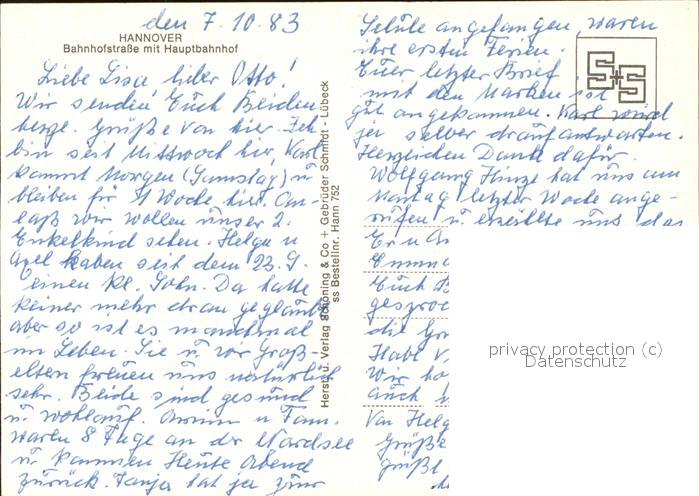 den 7.10.83
HANNOVER
Bahnhofstraße mit Hauptbahnhof
Liebe Lisa, lieber Otto!
Wir senden Euch Beiden
herzl. Grüße von hier. Ich
bin seit Mittwoch hier, Karl
kommt Morgen (Samstag) u
bleiben für 1 Woche hier. An-
laß wir wollen unser 2.
Enkelkind sehen. Helga u
Axel haben seit dem 23.9.
einen kl. Sohn. Da hatte
keiner mehr dran geglaubt
aber so ist es manchmal
im Leben. Sie u. wir Groß-
eltern freuen uns natürlich
sehr. Beide sind gesund
u. wohlauf. Armin u Fam.
waren 8 Tage an der Nordsee
u. kommen Heute Abend
zurück. Tanja hat ja zum
Herst. u. Verlag Schöning & Co + Gebrüder Schmidt - Lübeck
ss Bestellnr. Hann 752
Schule angefangen, waren
ihre ersten Ferien.
Euer letzter Brief
mit den Marken ist
gut angekommen. Karl wird
ja selber drauf antworten.
Herzlichen Dank dafür.
Wolfgang Hinze hat uns am
Montag letzter Woche ange-
rufen u erzählte uns das
Er u
Emma
Euch
gesproc
die Gr
Habt
Wir ha
auch
Von Helg
Grüße
grüßt
S+S
privacy protection (c)
Datenschutz